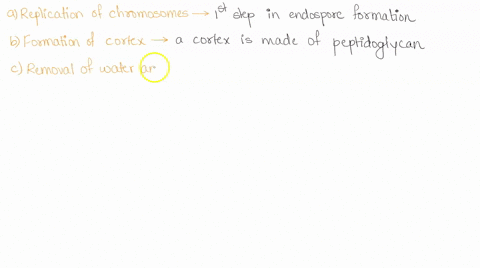 a) Replication of chromosomes → 1st step in endospore formation
b) Formation of cortex → a cortex is made of peptidoglycan
c) Removal of water ar